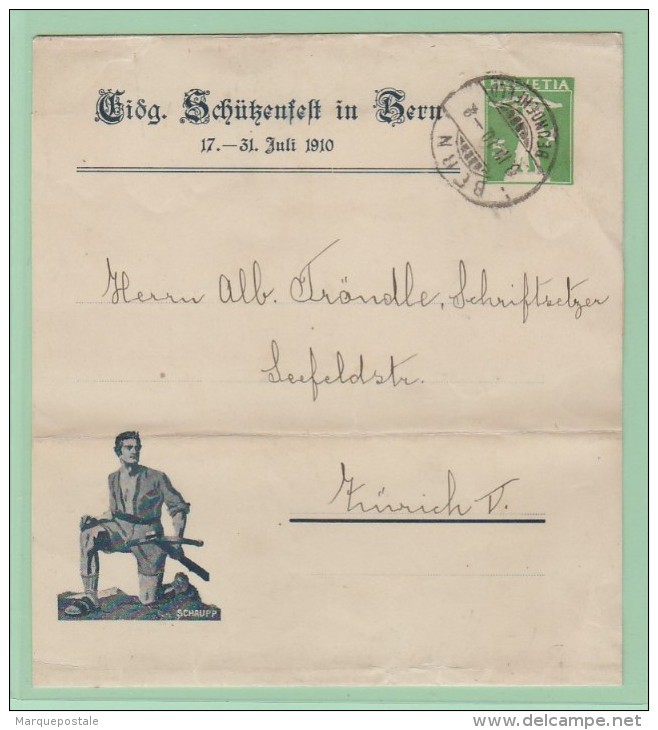 Eidg. Schützenfest in Bern
17.—31. Juli 1910
HELVETIA
BERN
Herrn Alb. Tröndle, Schriftsetzer
Seefeldstr.
Zürich V.
SCHAUPP
Marquepostale
www.delcampe.net